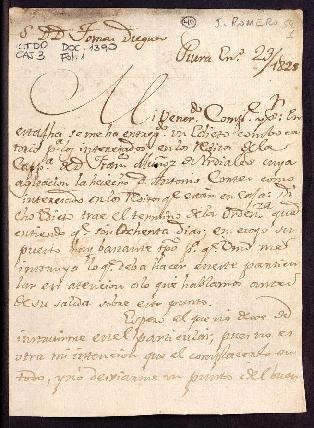 J. ROMERO
S. D.D. Tomas Dieguez
C.TDO DOC. 1390
CAJ 3 Fol: 1
Piura En.º 29/1828
Mi Vener.do Comp.
En esta fha se me ha entreg.do un edicto combocatorio p.a los interesados en los Reditos de la
Capp.a de D. Fran.co Muñoz de Andrades cuya
aplicacion la hicieron D. Antonio Conter como
interesados en los Reditos que están en Casas. Di
cho Edicto trae el termino de la Ordenza que
entiendo q.e son Ochenta dias; en cuyo su
puesto hay bastante tpo p.a q.e Vmd me
intruya lo q.e deba hacer en este particu
lar en atencion a lo que hablamos antes
de su salida sobre este punto.
Espero el que no dexe de
instruirme en el particular, pues no es
otra mi intencion que el complacerlo en
todo, y no desviarme un punto del buen